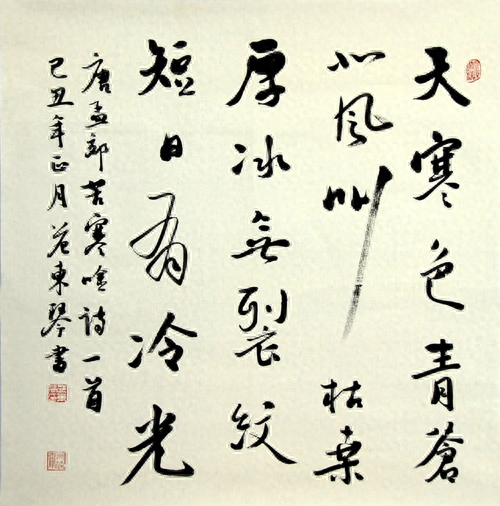 天寒色青蒼
北風叫枯桑
厚冰無裂紋
短日有冷光
唐孟郊苦寒吟詩一首
己丑年正月東琴書